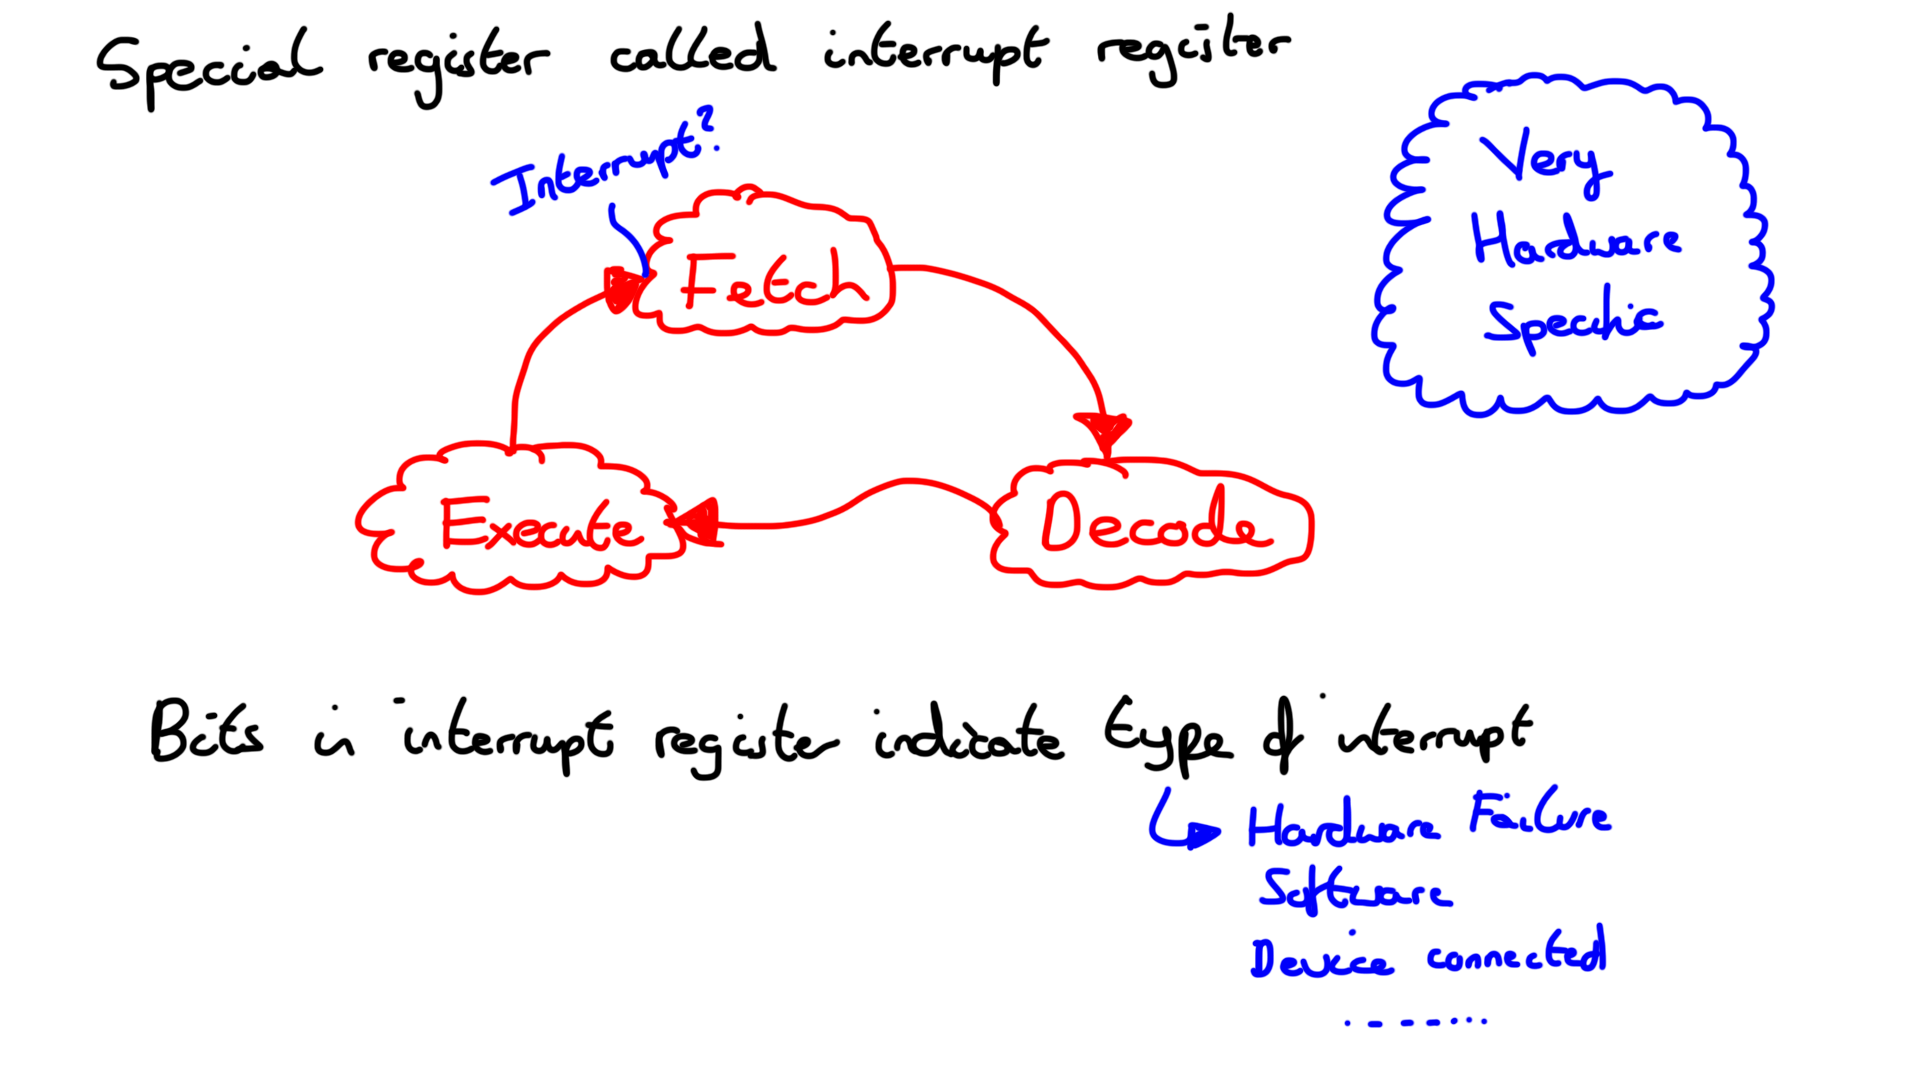 Special register called interrupt register
Interrupt?
Very
Hardware
Specific
Fetch
Execute
Decode
Bits in interrupt register indicate type of interrupt
Hardware Failure
Software
Device connected
.---...